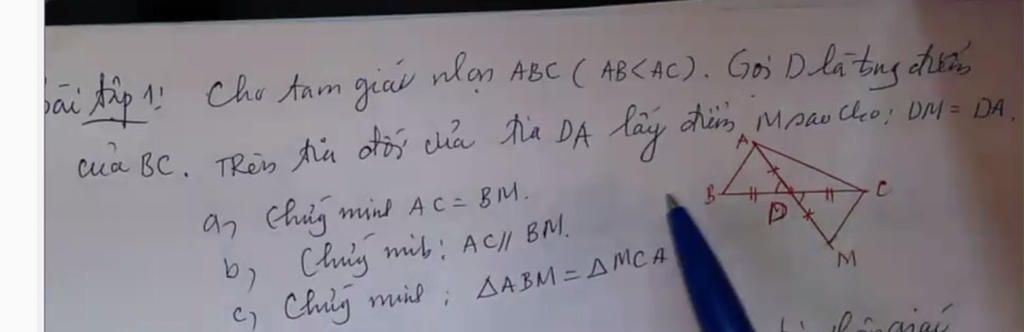 bài tập 1: Cho tam giác nhọn ABC ( AB < AC ). Gọi D là trung điểm
của BC. Trên tia đối của tia DA lấy điểm M sao cho: DM = DA.
A
B
C
D
M
a, Chứng minh AC = BM.
b, Chứng minh: AC // BM.
c, Chứng minh: ΔABM = ΔMCA